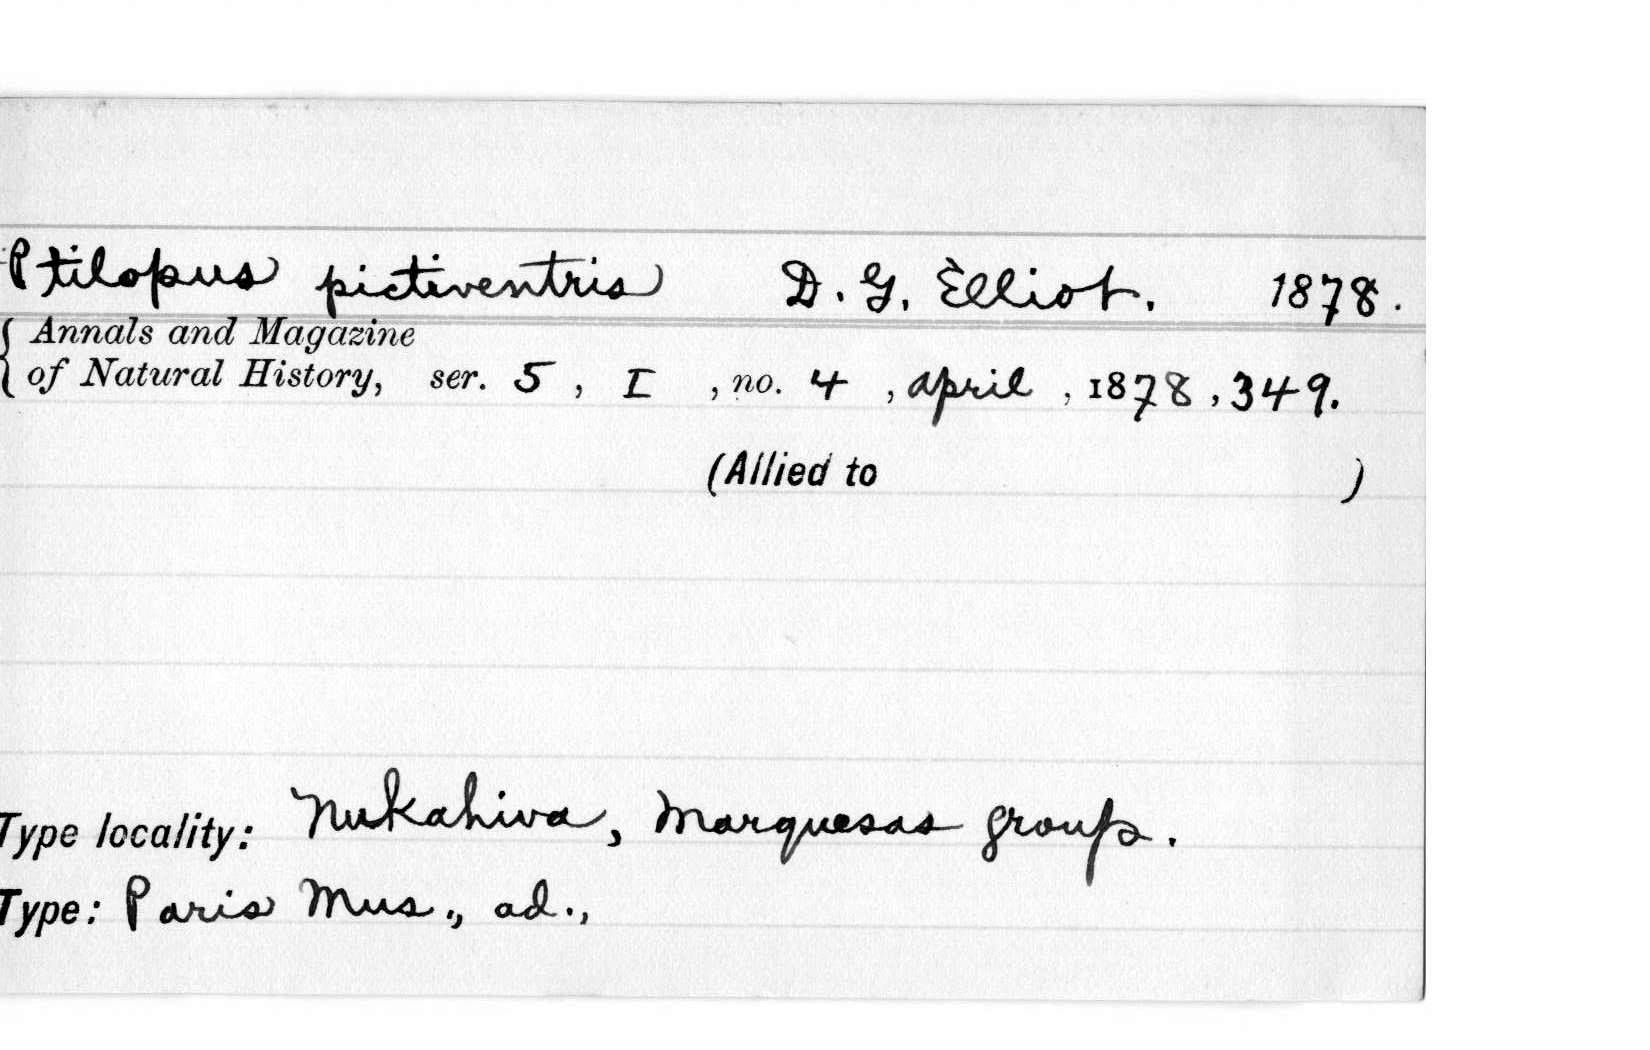 Ptilopus pictiventris D. G. Elliot. 1878.
{ Annals and Magazine
of Natural History, ser. 5, I, no. 4, april, 1878, 349.
(Allied to )
Type locality: Nukahiva, Marquesas group.
Type: Paris Mus., ad.,